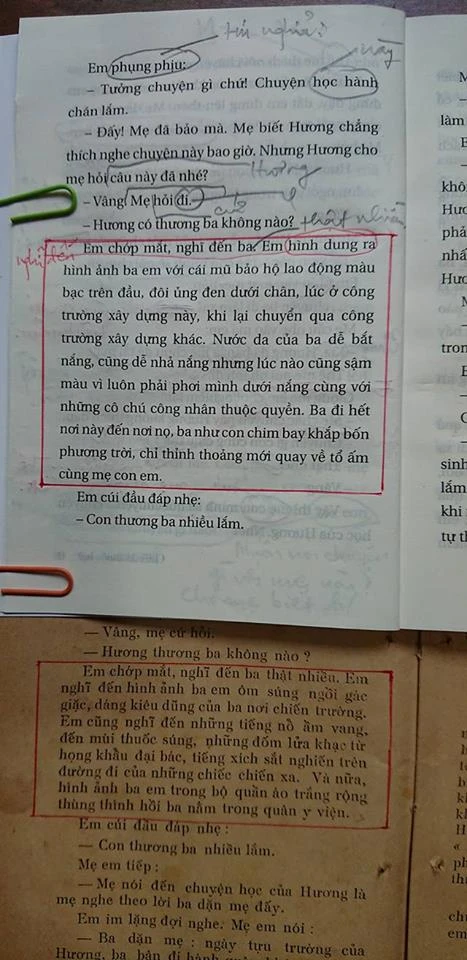 tín nghĩa?
này
Em phụng phịu:
– Tưởng chuyện gì chứ! Chuyện học hành
chán lắm.
– Đấy! Mẹ đã bảo mà. Mẹ biết Hương chẳng
thích nghe chuyện này bao giờ. Nhưng Hương cho
mẹ hỏi câu này đã nhé?
Hương
– Vâng! Mẹ hỏi đi.
cứ
– Hương có thương ba không nào?
thật nhiều
nghĩ đến
Em chớp mắt, nghĩ đến ba. Em hình dung ra
hình ảnh ba em với cái mũ bảo hộ lao động màu
bạc trên đầu, đôi ủng đen dưới chân, lúc ở công
trường xây dựng này, khi lại chuyển qua công
trường xây dựng khác. Nước da của ba dễ bắt
nắng, cũng dễ nhả nắng nhưng lúc nào cũng sậm
màu vì luôn phải phơi mình dưới nắng cùng với
những cô chú công nhân thuộc quyền. Ba đi hết
nơi này đến nơi nọ, ba như con chim bay khắp bốn
phương trời, chỉ thỉnh thoảng mới quay về tổ ấm
cùng mẹ con em.
Em cúi đầu đáp nhẹ:
– Con thương ba nhiều lắm.
— Vâng, mẹ cứ hỏi.
— Hương thương ba không nào ?
Em chớp mắt, nghĩ đến ba thật nhiều. Em
nghĩ đến hình ảnh ba em ôm súng ngồi gác
giặc, dáng kiêu dũng của ba nơi chiến trường.
Em cũng nghĩ đến những tiếng nổ ầm vang,
đến mùi thuốc súng, những đốm lửa khạc từ
họng khẩu đại bác, tiếng xích sắt nghiến trên
đường đi của những chiếc chiến xa. Và nữa,
hình ảnh ba em trong bộ quần áo trắng rộng
thùng thình hồi ba nằm trong quân y viện.
Em cúi đầu đáp nhẹ :
— Con thương ba nhiều lắm.
Mẹ em tiếp :
— Mẹ nói đến chuyện học của Hương là
mẹ nghe theo lời ba dặn mẹ đấy.
Em im lặng đợi nghe. Mẹ em nói :
— Ba dặn mẹ : ngày tựu trường của
Hương, ba bận đi hành